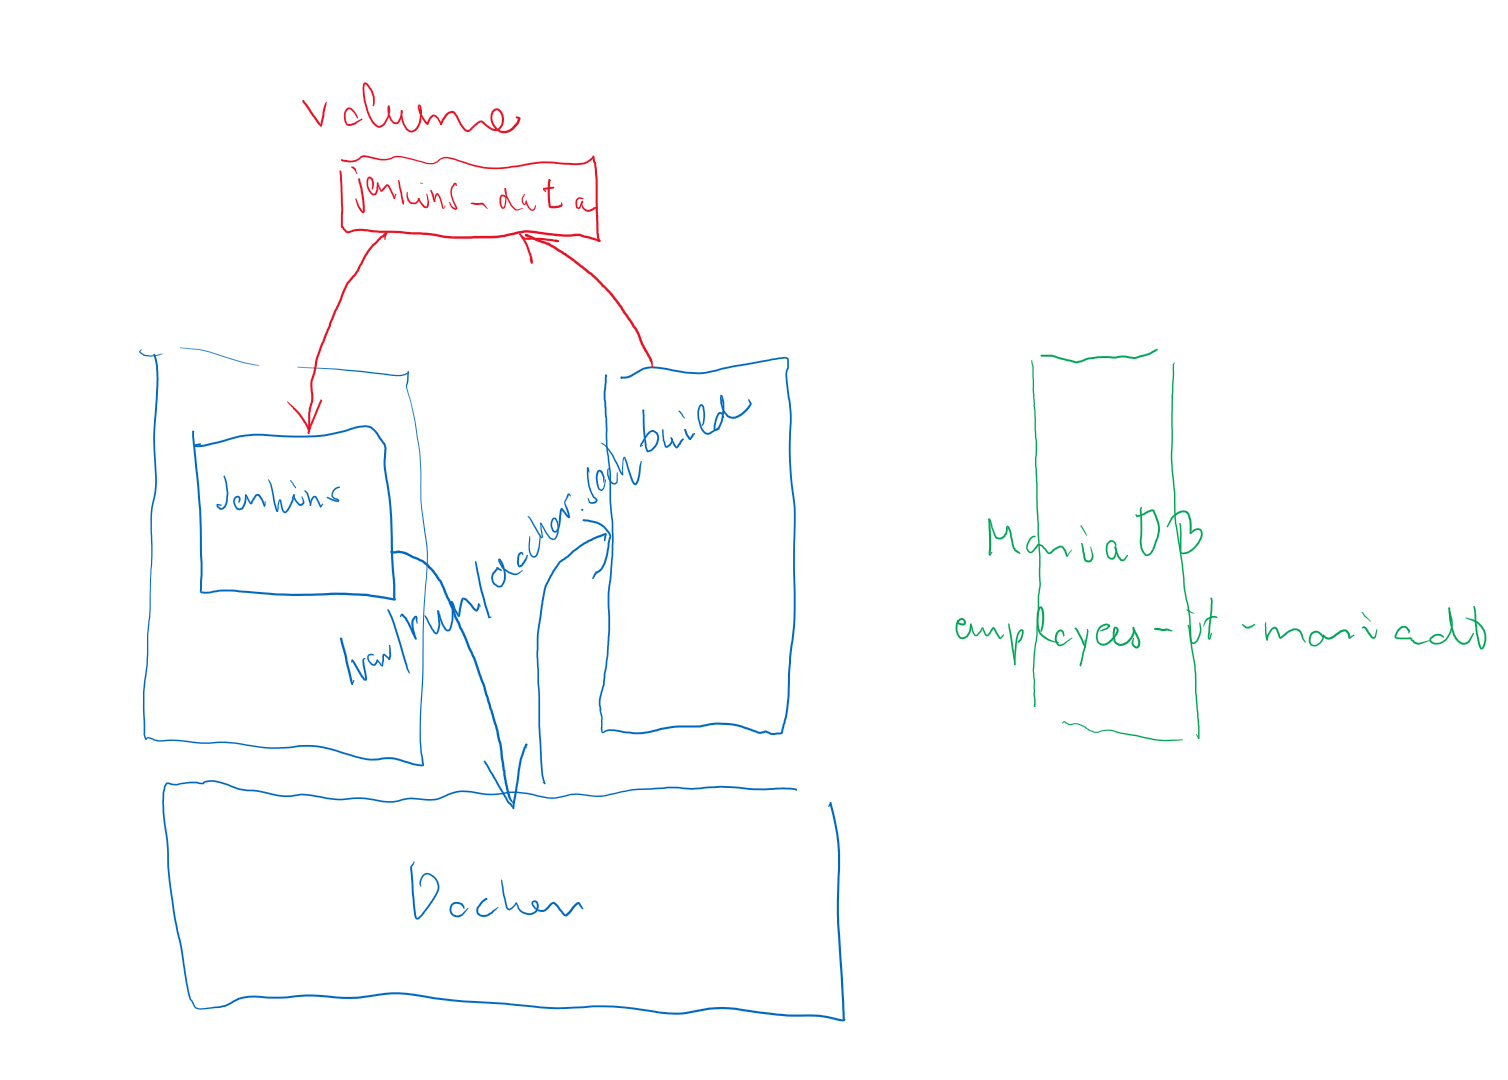 volume
jenkins-data
Jenkins
/var/run/docker.sock
build
MariaDB
employees-it-mariadb
Docker